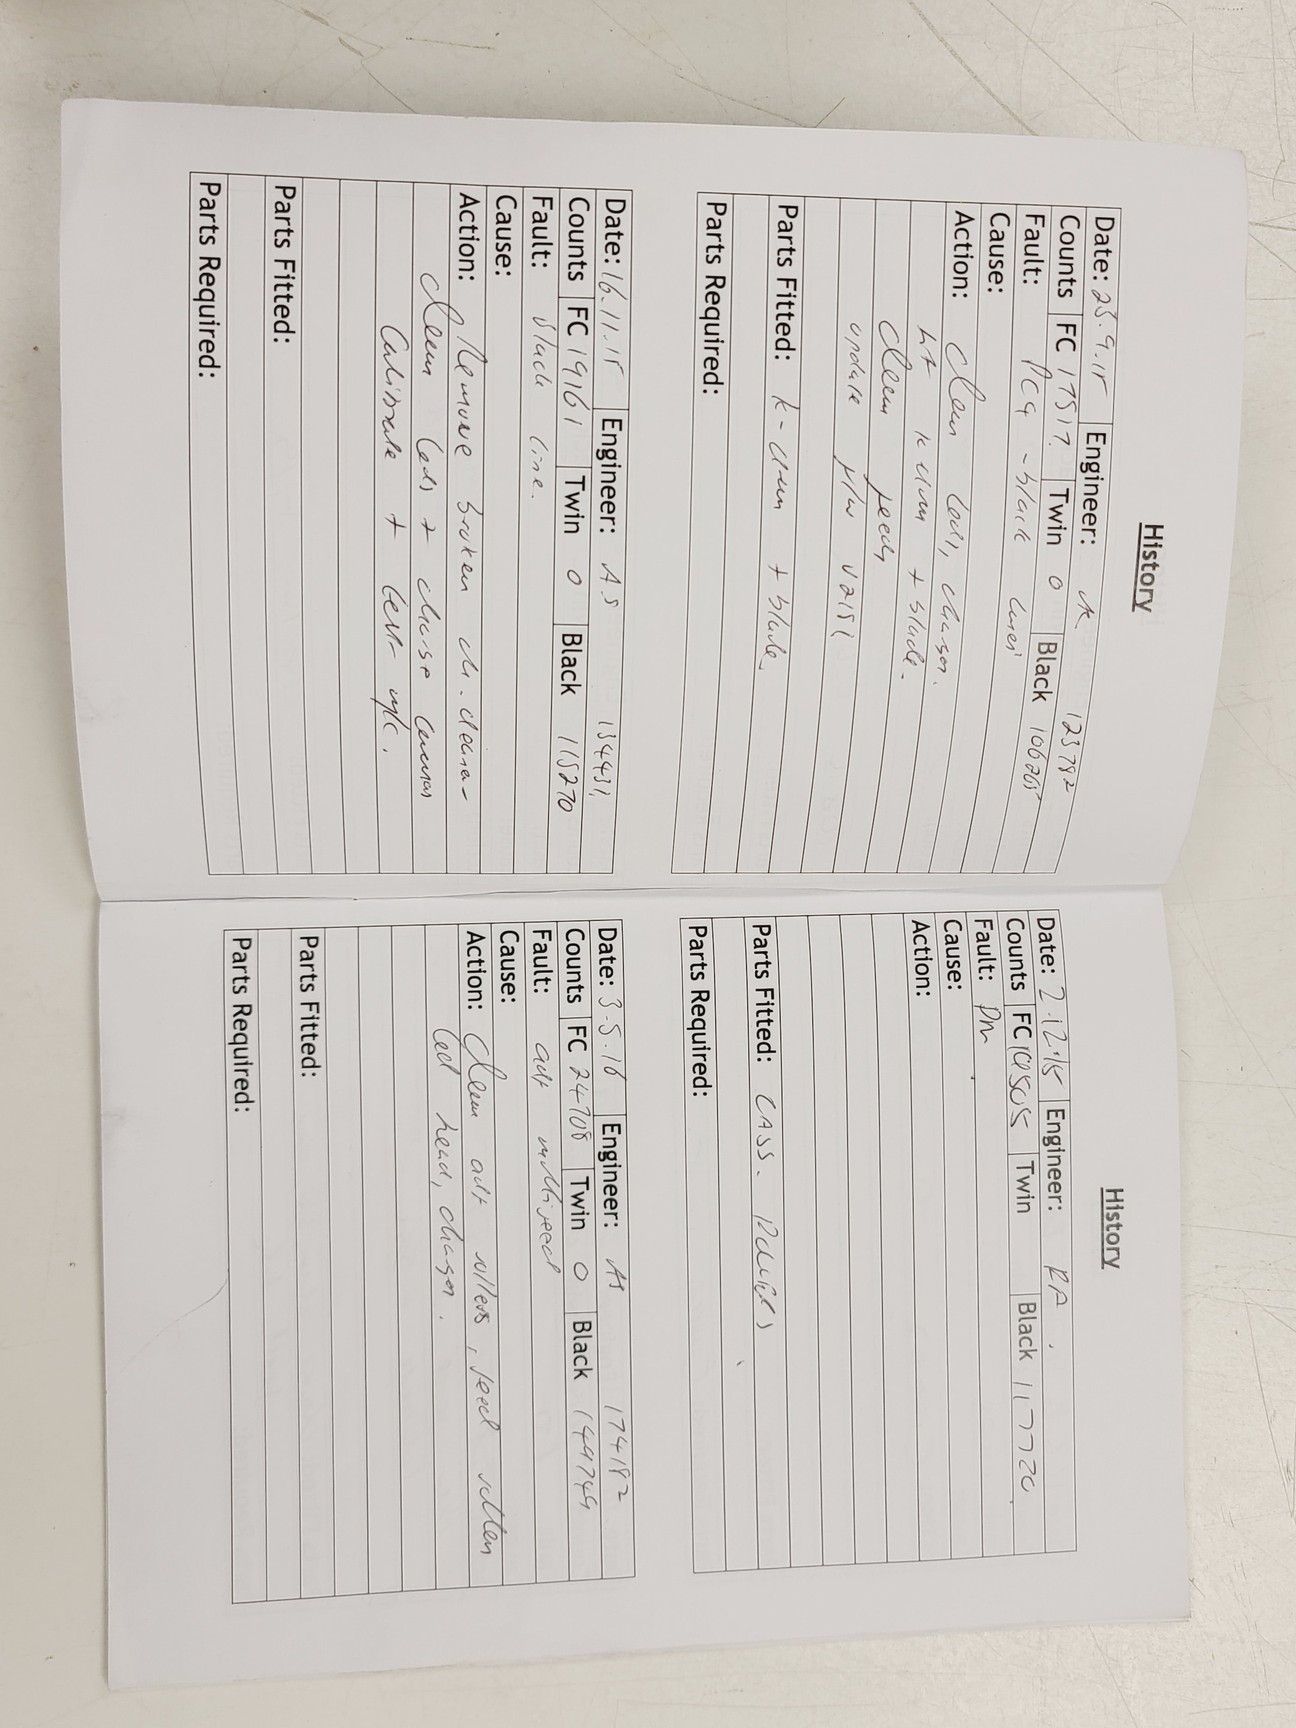 History
Date: 23.9.15 Engineer: 123782
Counts FC 17517 Twin 0 Black 106265
Fault: - black lines
Cause:
Action: Clean leds, charger.
fit k drum + blade.
Clean feeds
update
Parts Fitted: k-drum + blade.
Parts Required:
Date: 16.11.15 Engineer: AS 134431
Counts FC 19161 Twin 0 Black 115270
Fault: Black line.
Cause:
Action: Remove broken ch. cleaner
Clean leds + charge
Calibrate + test
Parts Fitted:
Parts Required:
History
Date: 2.12.15 Engineer: RA.
Counts FC Twin Black 117720
Fault: PM
Cause:
Action:
Parts Fitted: CASS.
Parts Required:
Date: 3.5.16 Engineer: AS 174182
Counts FC 24708 Twin 0 Black 144749
Fault: adf multifeed
Cause:
Action: Clean adf rollers, feed rollers
led head, charger.
Parts Fitted:
Parts Required: